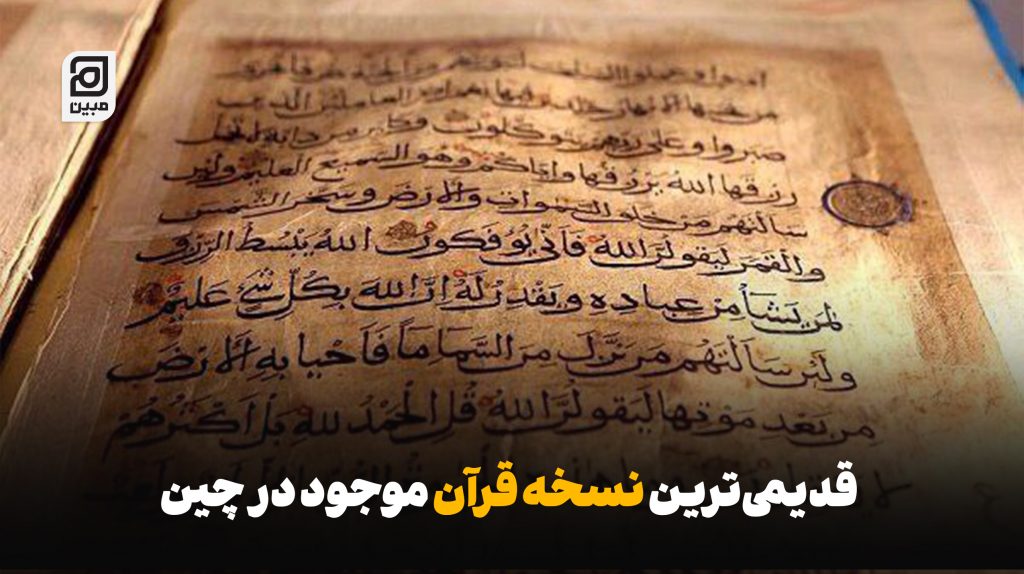 مبین
امنوا وعملوا الصلحت لنبوئنهم من الجنة غرفا تجرى
من تحتها الانهار خالدين فيها نعم اجر العاملين الذين
صبروا وعلى ربهم يتوكلون وكاين من دابة لا تحمل
رزقها الله يرزقها واياكم وهو السميع العليم ولئن
سالتهم من خلق السموات والارض وسخر الشمس
والقمر ليقولن الله فانى يوفكون الله يبسط الرزق
لمن يشا من عباده ويقدر له ان الله بكل شى عليم
ولئن سالتهم من نزل من السما ما فاحيا به الارض
من بعد موتها ليقولن الله قل الحمد لله بل اكثرهم
لا
قدیمی‌ترین نسخه قرآن موجود در چین